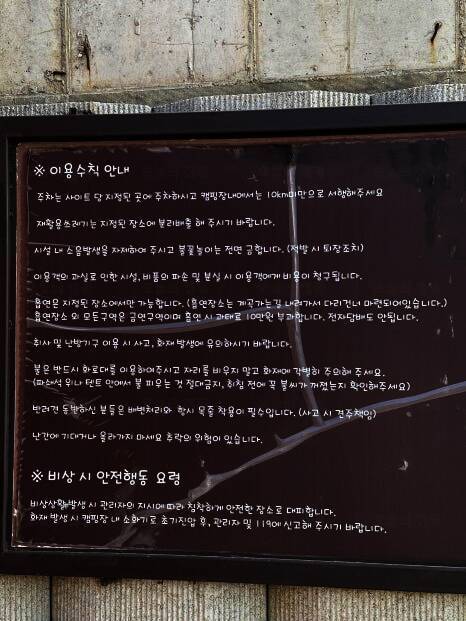 ※ 이용수칙 안내
주차는 사이트 당 지정된 곳에 주차하시고 캠핑장내에서는 10km미만으로 서행해주세요
재활용쓰레기는 지정된 장소에 분리배출 해 주시기 바랍니다.
시설 내 소음발생을 자제하여 주시고 불꽃놀이는 전면 금합니다. (적발 시 퇴장조치)
이용객의 과실로 인한 시설, 비품의 파손 및 분실 시 이용객에게 비용이 청구됩니다.
흡연은 지정된 장소에서만 가능합니다. (흡연장소는 계곡가는길 내려가서 다리건너 마련되어있습니다.)
흡연장소 외 모든구역은 금연구역이며 흡연 시 과태료 10만원 부과합니다. 전자담배도 안됩니다.
취사 및 난방기구 이용 시 사고, 화재 발생에 유의하시기 바랍니다.
불은 반드시 화로대를 이용하여주시고 자리를 비우지 말고 화재에 각별히 주의해 주세요.
(파쇄석 위나 텐트 안에서 불 피우는 것 절대금지, 취침 전에 꼭 불씨가 꺼졌는지 확인해주세요)
반려견 동반하신 분들은 배변처리와 항시 목줄 착용이 필수입니다. (사고 시 견주책임)
난간에 기대거나 올라가지 마세요 추락의 위험이 있습니다.
※ 비상 시 안전행동 요령
비상상황 발생 시 관리자의 지시에 따라 침착하게 안전한 장소로 대피합니다.
화재 발생 시 캠핑장 내 소화기로 초기진압 후, 관리자 및 119에 신고해 주시기 바랍니다.